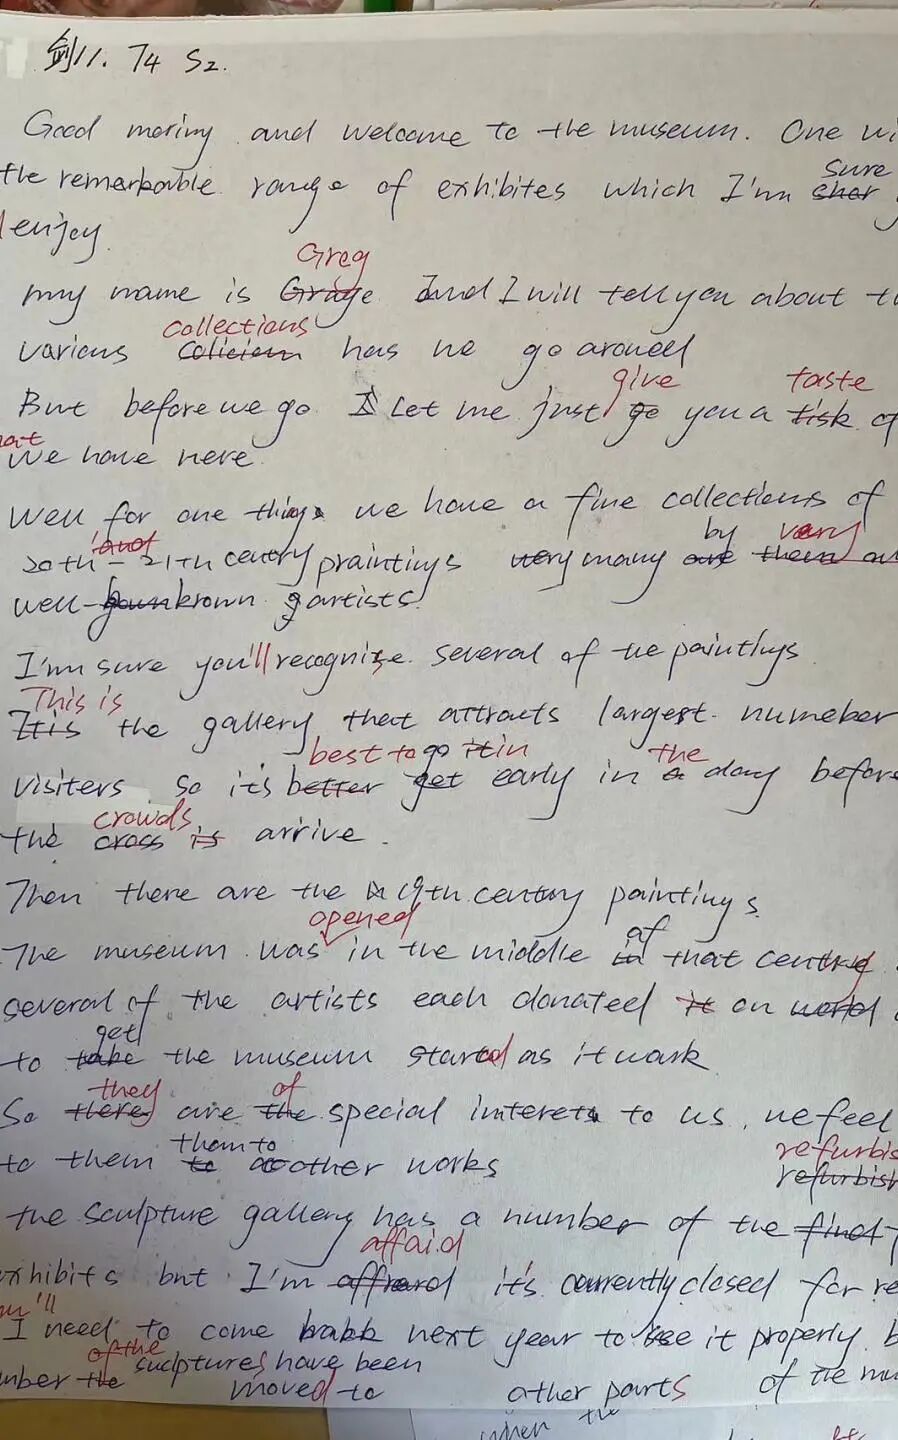 剑11. T4 S2.
Good moriny and welcome to the museum. One
sure
the remarkable range of exhibites which I'm sher
enjoy.
Greg
my name is Grage And I will tell you about
collections
various colicien has we go around
give taste
But before we go I Let me just ge you a tisk of
we have here.
Well for one things we have a fine collections of
and by very
20th - 21th centry praintings very many are them
well-known artists.
I'm sure you'll recognize several of the paintings
This is
It is the gallery that attracts largest numeber
best to go in the
visiters. So it's better get it early in a day before
crowds
the cross is arrive.
Then there are the 19th century paintings
opened of
The museum was in the middle in that century
several of the artists each donated it on world
get
to take the museum started as it wark
they of
So there are the special interets to us, we feel
them to refurbis
to them to another works refurbish
the sculpture gallery has a number of the finet
affaid
exhibits but I'm affrard it's currently closed for re
I need to come babk next year to see it properly
of the suclptures have been
the moved to other parts of the mu
when the